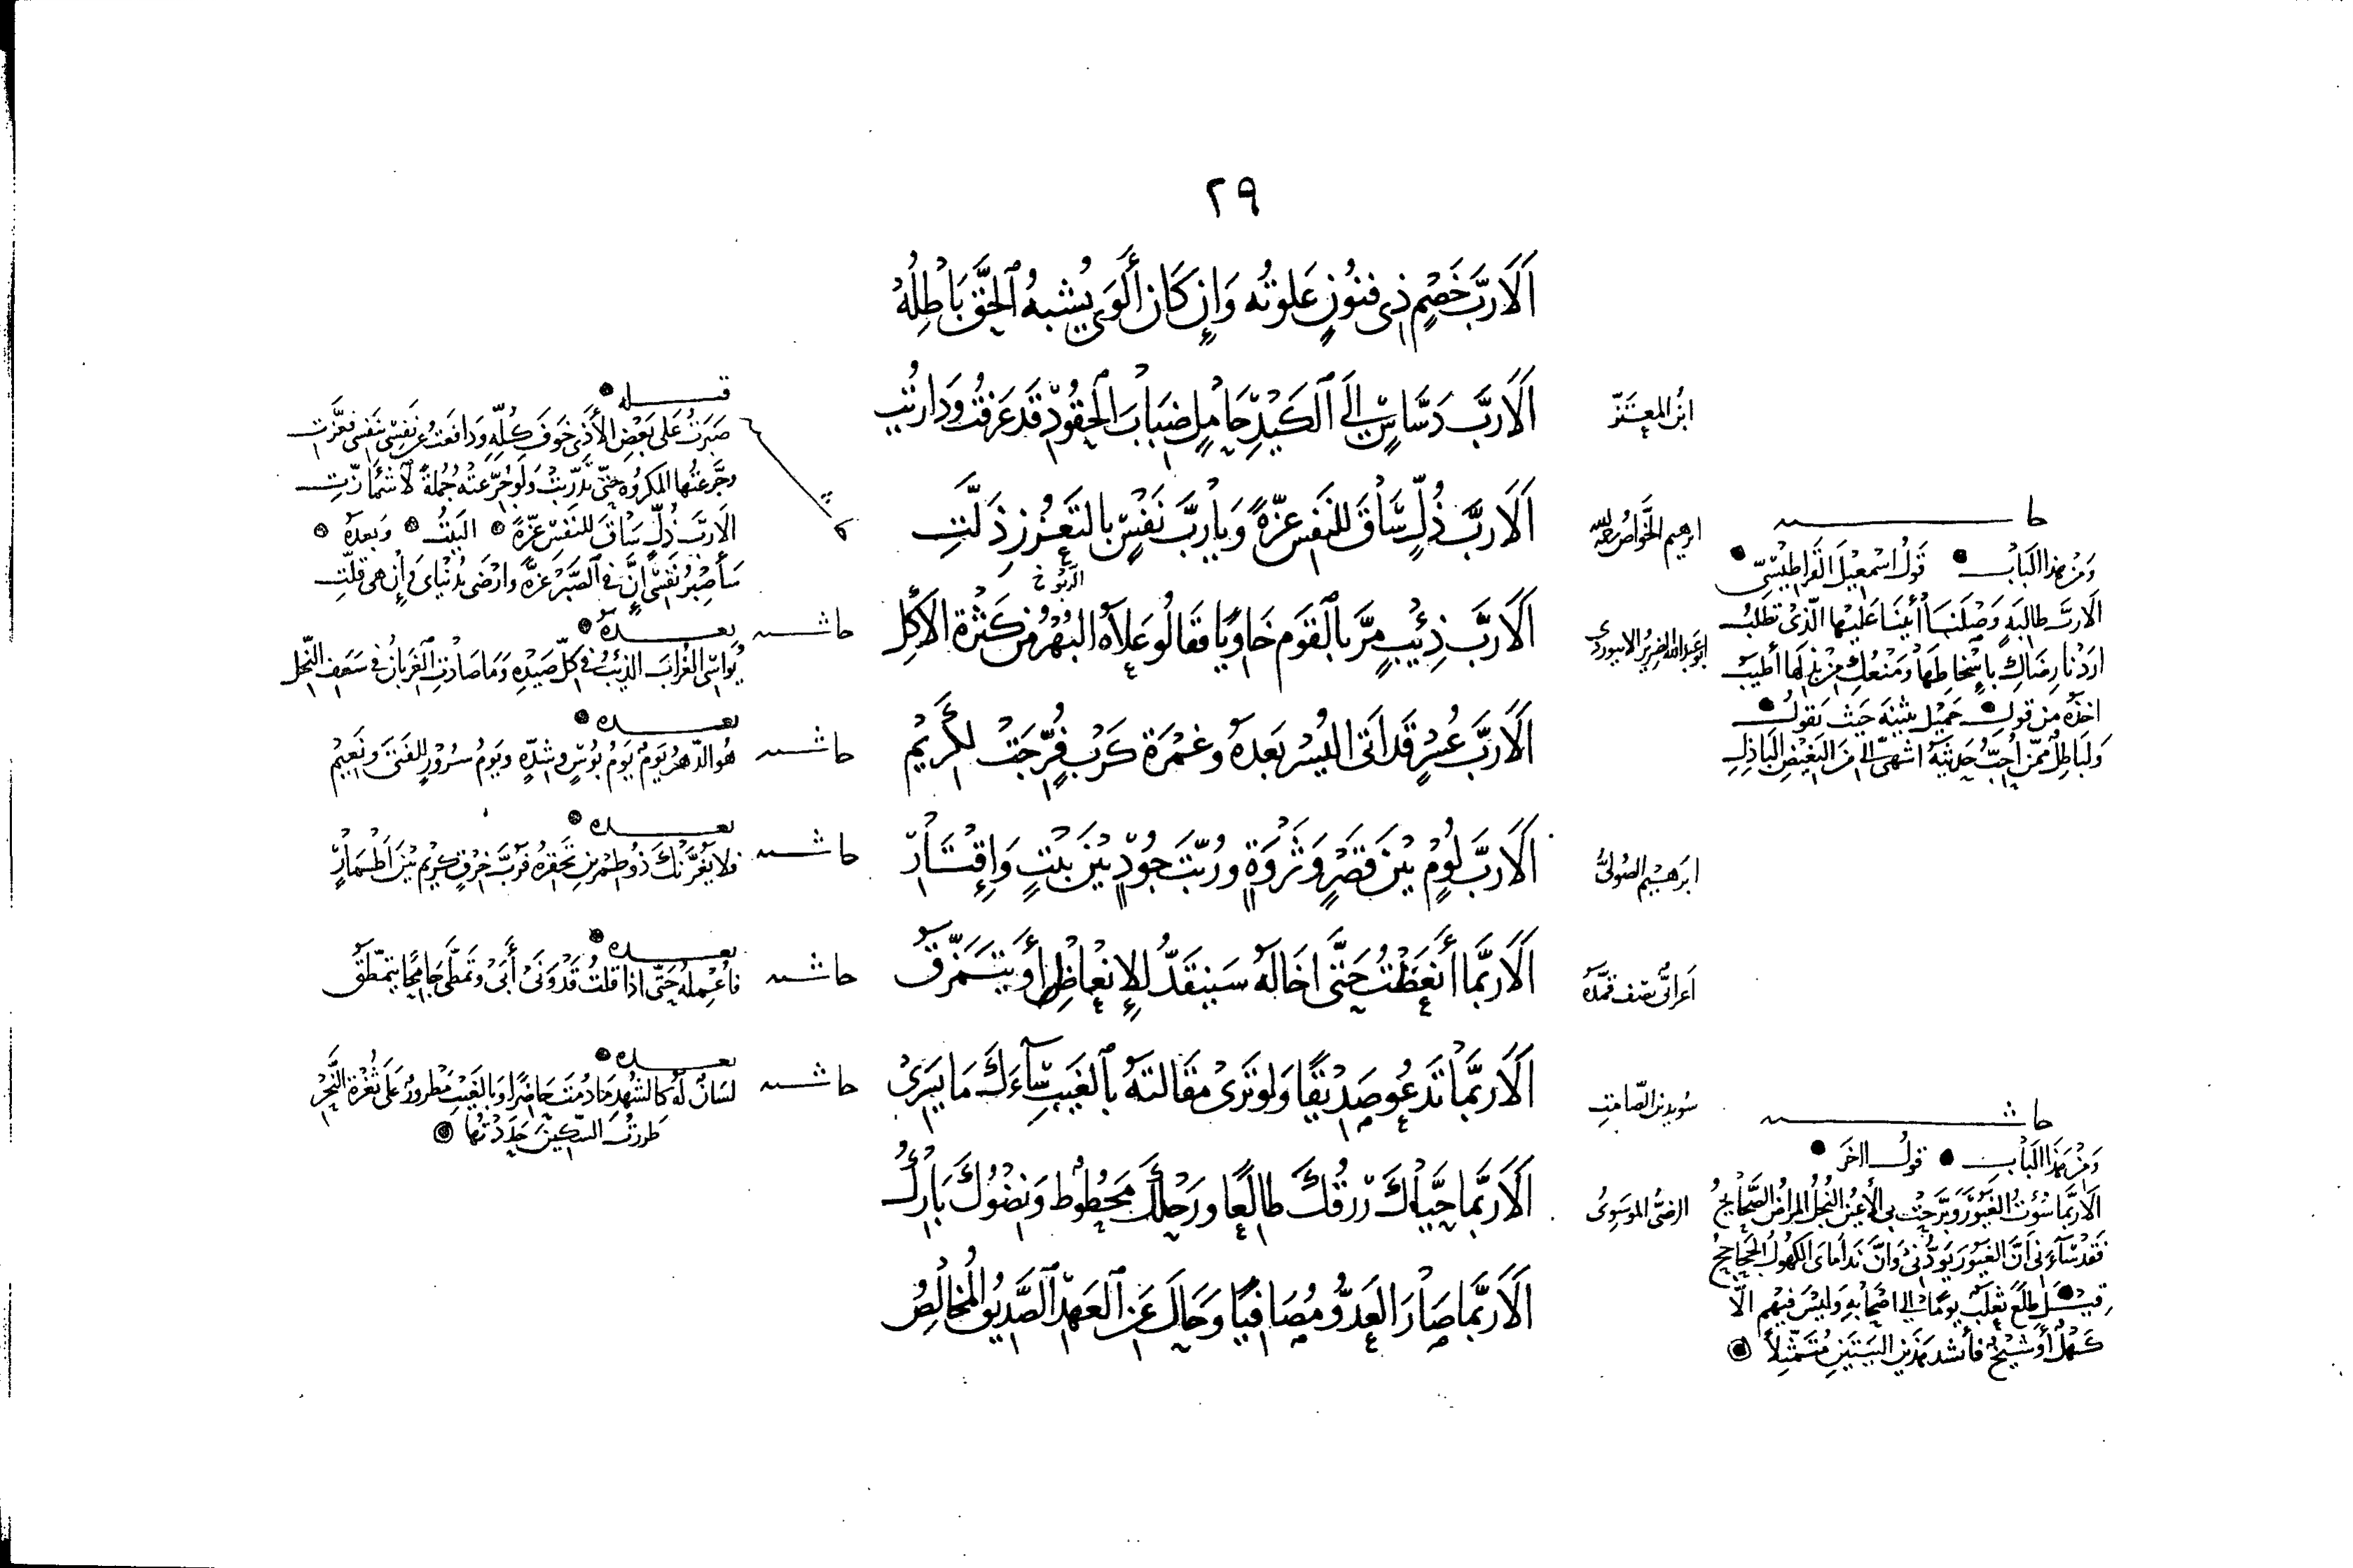 ٢٩
أَلَا رُبَّ خَصْمٍ ذِي فُنُونٍ عَلَوْتُه وَإِنْ كَانَ أَلْوَى يُشْبِهُ ٱلْحَقَّ بَاطِلُهُ
ابنُ المعتز
أَلَا رُبَّ دَسَّاسٍ إِلَى ٱلْكَيْدِ حَامِلٍ ضِبَابَ ٱلْحُقُودِ قَد عَرَفْتُ وَدَارَيْتُ
ابرهيم الخَوَّاصُ رحمه الله
أَلَا رُبَّ ذُلٍّ سَاقَ لِلنَّفْسِ عِزَّةً وَيَا رُبَّ نَفْسٍ بِالتَّعَزُّزِ ذَلَّتِ
الرَّبْوُ خ
ابو عبد الله الضرير الابيوردي
أَلَا رُبَّ ذِئْبٍ مَرَّ بِالْقَوْمِ خَاوِيًا فَقَالُوا عَلَاهُ الْبُهْرُ مِنْ كَثْرَةِ الْأَكْلِ
أَلَا رُبَّ عُسْرٍ قَد أَتَى الْيُسْرُ بَعْدَهُ وَغَمْرَةِ كَرْبٍ فُرِّجَتْ لِكَرِيْمِ
ابرهيم الصُولىُّ
أَلَا رُبَّ لُؤْمٍ بَيْنَ قَصْرٍ وَثَرْوَةٍ وَرُبَّتَ جُوْدٍ بَيْنَ بَيْتٍ وَإِقْتَارِ
أعرابىٌّ يصف قُمُدَّهُ
أَلَا رُبَّمَا أَنْعَظْتُ حَتَّى اخَالَهُ سَيَنْقَدُّ لِلإِنْعَاظِ أَوْ يَتَمَزَّقُ
سُويد بن الصّامت
أَلَا رُبَّمَا تَدْعُو صَدِيْقًا وَلَوْ تَرَى مَقَالَتَهُ بِالْغَيْبِ سَآءَكَ مَا يَفْرِى
الرضىُّ الموسوىُّ
أَلَا رُبَّمَا حَيَّاكَ رِزْقُكَ طَالِعًا وَرَحْلُكَ مَحْطُوطٌ وَنِضْوُكَ بَارِكُ
أَلَا رُبَّمَا صَارَ الْعَدُوُّ مُصَافِيًا وَحَالَ عَنِ ٱلْعَهْدِ ٱلصَّدِيْقُ الْمُخَالِصُ
حا
وَمِنْ هذا الْبَابِ قَولُ اسْمعِيْلَ القَرَاطِيْسِيِّ
أَلَا رُبَّ طَالِبَةٍ وَصْلَنَا أَبَيْنَا عَلَيْهَا الَّذِى تَطْلُبُ
اَرَدْنَا رِضَاكِ بِاسْخَاطِهَا وَمَنْعُكِ مِنْ بَذْلِهَا أَطْيَبُ
اخَذَهُ مِنْ قَولِ جَمِيْلِ بُثَيْنَةَ حَيْثُ يَقُولُ
وَلَبَاطِلٌ مِمَّنْ أُحِبُّ حَدِيْثَهُ اشْهَى إِلَيَّ مِنَ الْبَغِيْضِ الْبَاذِلِ
حاشــــية
وَمِنْ هَذَا الْبَابِ قَولُ اٰخَرَ
أَلَا رُبَّمَا سُؤْتُ الْغَيُوْرَ وَبَرَّحَتْ بِي الأَعْيُنُ النُّجْلُ الْمِرَاضُ الصَّحَايِحُ
فَقَدْ سَآءَنِى اَنَّ الْغَيُوْرَ يَوَدُّنِى وَأَنَّ نَدَامَاىَ الْكُهُولُ الْجَحَاجِحُ
قِيْلَ طَلَعَ ثَعْلَبٌ يَومًا إِلى اَصْحَابِهِ وَلَيْسَ فِيْهِم الَّا
كَهْلٌ أَوْ شَيْخٌ فأنشد هَذَيْنِ الْبَيْتَيْنِ مُتَمَثِّلًا
قــــبله
صَبَرْتُ عَلَى بَعْضِ الْأَذَى خَوْفَ كُلِّهِ وَدَافَعْتُ عَنْ نَفْسِى بِنَفْسِى فَعَزَّتِ
وَجَرَّعْتُهَا المَكْرُوهَ حَتَّى تَدَرَّبَتْ وَلَوْ جُرِّعَتْهُ جُمْلَةً لَاشْمَأَزَّتِ
أَلَا رُبَّ ذُلٍّ سَاقَ لِلنَّفْسِ عِزَّةً البَيْتُ وَبَعْدَهُ
سَأَصْبِرُ نَفْسِى إِنَّ فِى ٱلصَّبْرِ عِزَّةً وَارْضَى بِدُنْيَاىَ وَإِنْ هِىَ قَلَّتِ
حاشــــية بعــــده
يُوَاسِى الغُرَابَ الذِئْبُ فِى كُلِّ صَيْدِهِ وَمَا صَادَتِ ٱلْغِرْبَانُ فِى سَعَفِ النَّخْلِ
حاشــــية بعــــده
هُوَ الدَّهْرُ يَوْمٌ يَوْمُ بُؤْسٍ وَشِدَّةٍ وَيَوْمُ سُرُوْرٍ لِلْفَتَى وَنَعِيْمِ
حاشــــية بعــــده
فَلا يَغُرَّنْكَ ذُو طِمْرَيْنِ تَحْقِرُهُ فَرُبَّ خِرْقٍ كَرِيْمٍ بَيْنَ اَطْمَارِ
حاشــــية بعــــده
فَأُعْمِلُهُ حَتَّى اذَا قُلْتُ قَدْ وَنَى أَبَى وَتَمَطَّى جَامِحًا يَتَمَطَّقُ
حاشــــية بعــــده
لِسَانٌ لَهُ كَالشُّهْدِ مَا دُمْتَ حَاضِرًا وَبِالْغَيْبِ مَطْرُورٌ عَلَى ثُغْرَةِ النَّحْرِ
طَرَرْتُ السِّكِّيْنَ حَدَّدْتُهَا